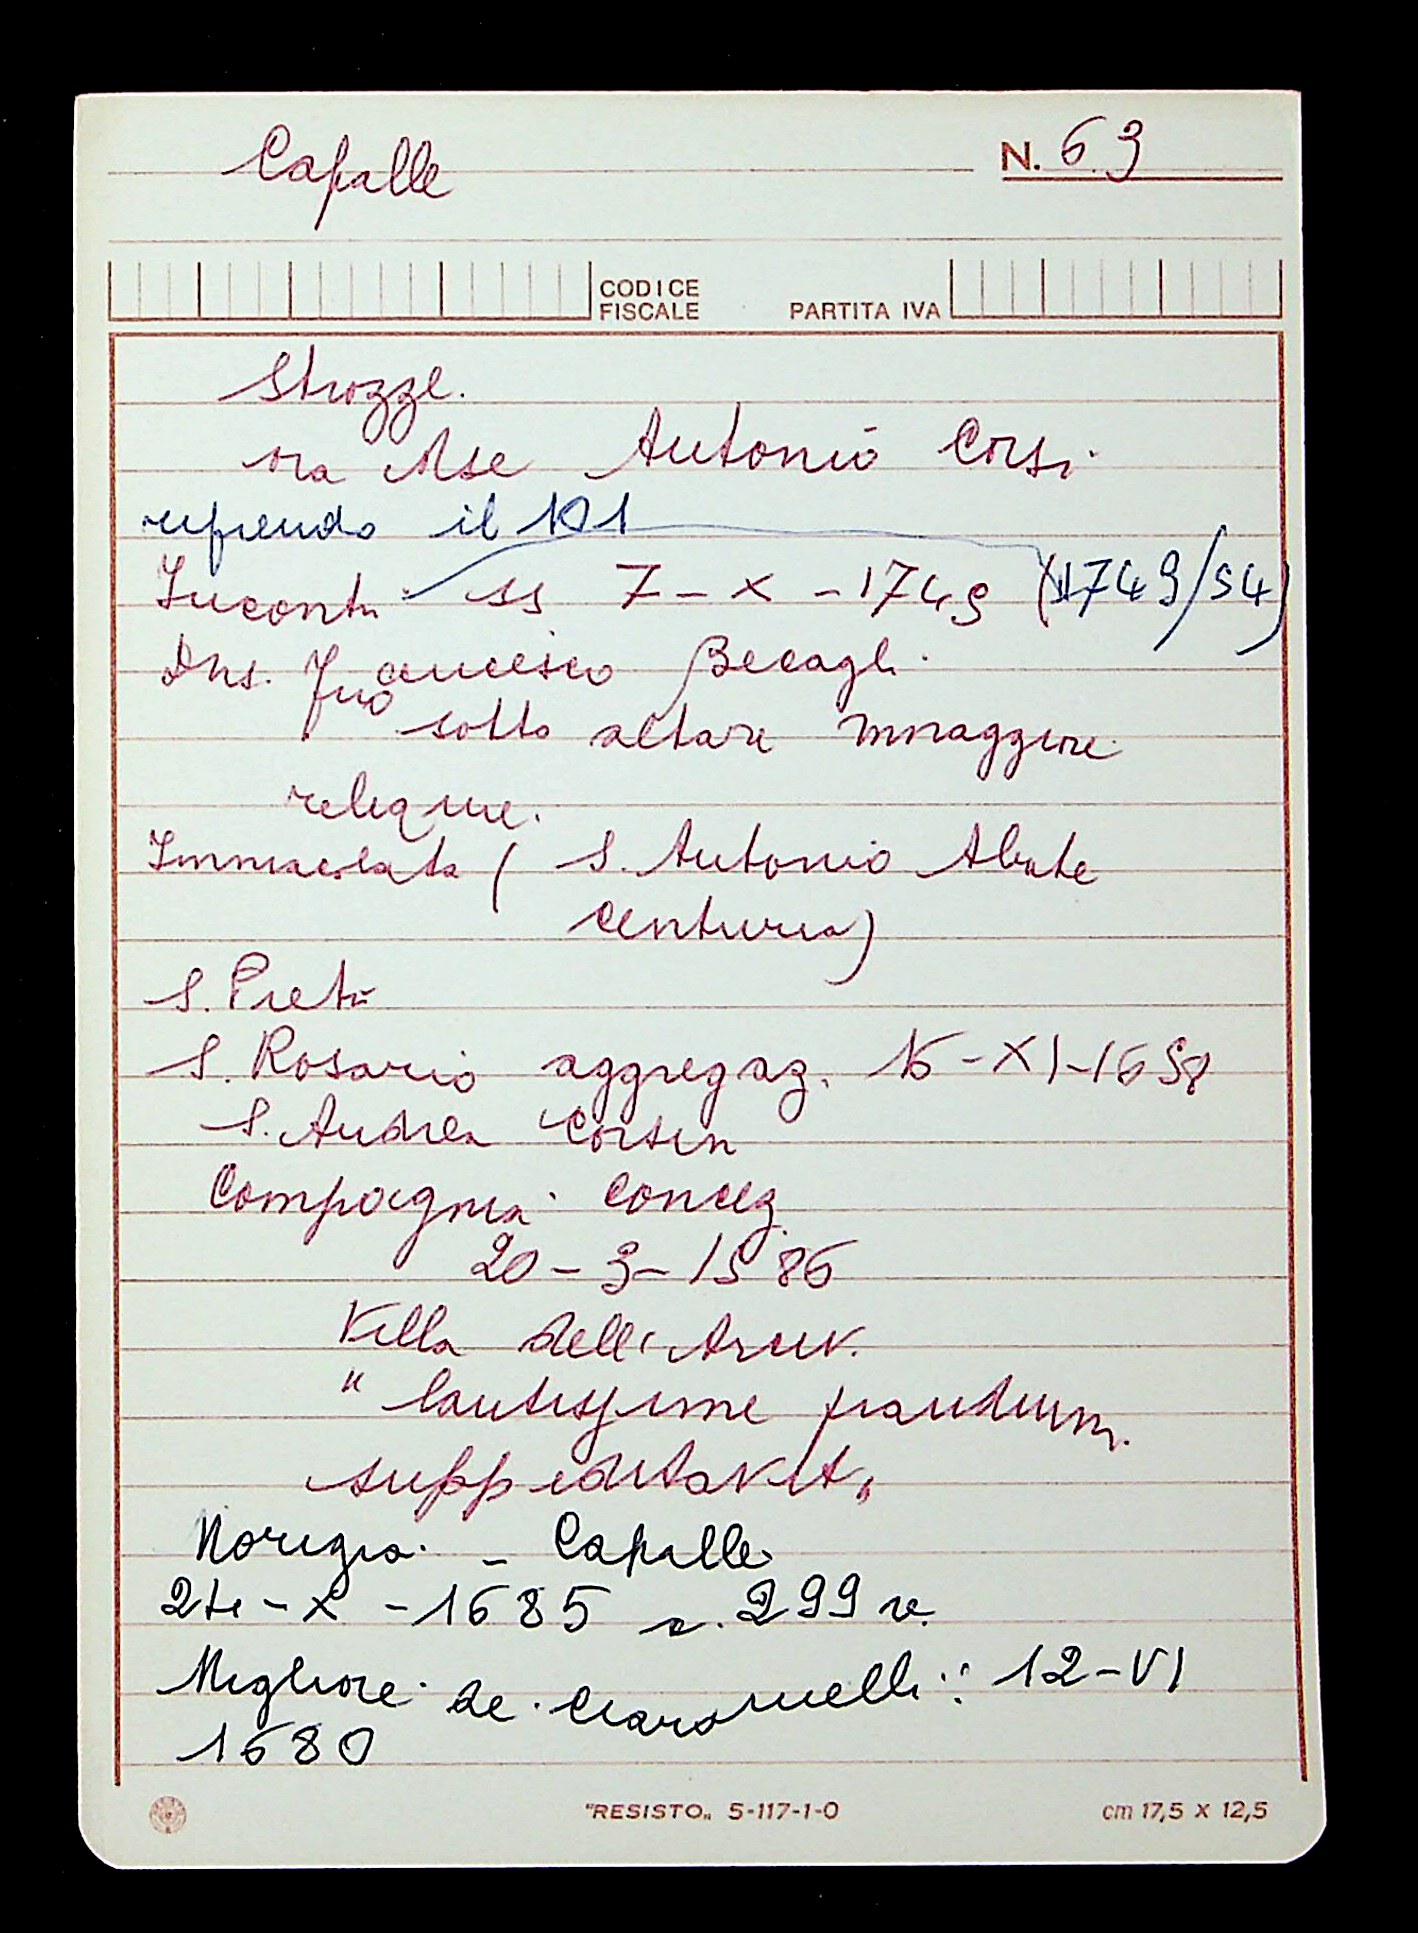 Capalle
N. 63
CODICE FISCALE
PARTITA IVA
Strozzi.
ora Mse Antonio Corsi
riprendo il 101
Incontri ss 7-X-1749 (1749/54)
Dns. Francesco Becagli
sotto altare maggiore
reliquie.
Immacolata ( S. Antonio Abate
centuria)
S. Pietà
S. Rosario aggregaz. 16-XI-1658
S. Andrea Corsin
Compagnia Concez.
20-3-1586
Villa dell'Arciv.
" lautissime prandium
suppeditavit "
Morigia - Capalle
24-X-1685 299 v.
Migliore de 12-VI
1680
"RESISTO" 5-117-1-0
cm 17,5 x 12,5